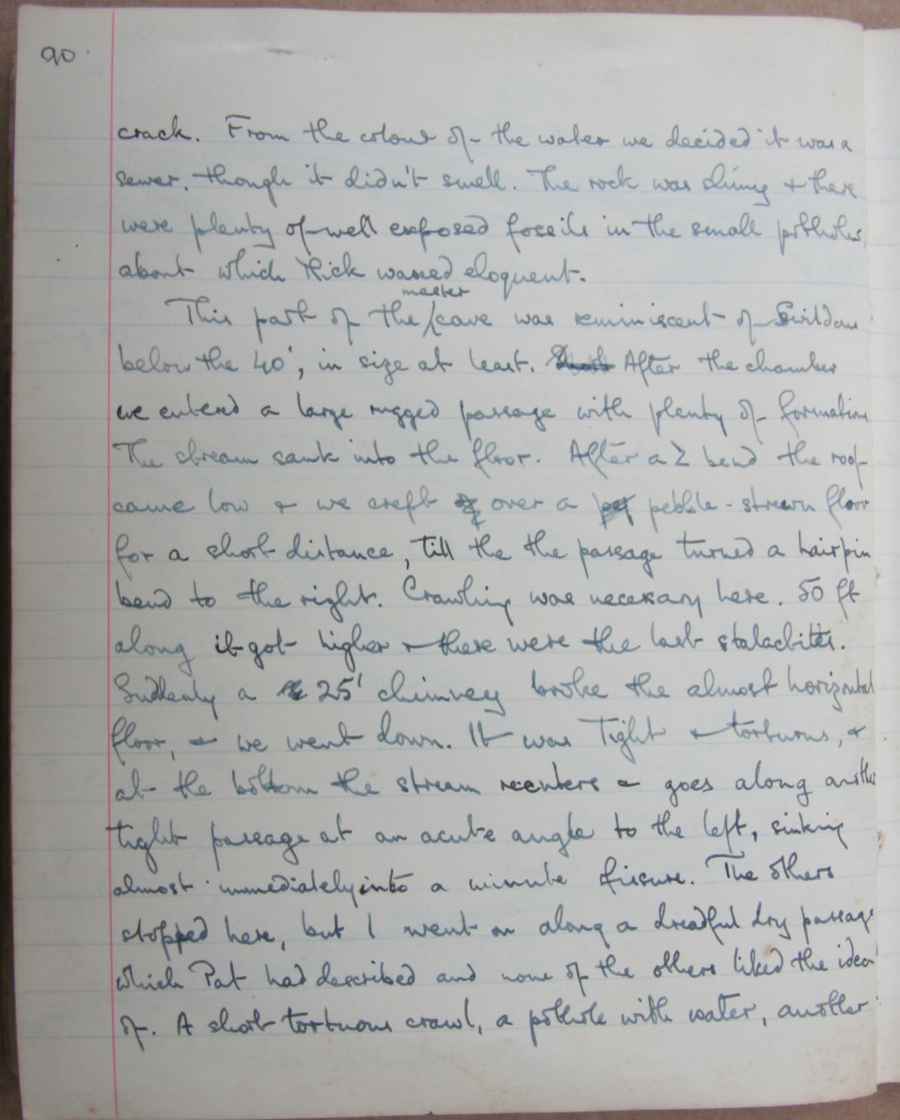 90.
crack. From the colour of the water we decided it was a
sewer, though it didn't smell. The rock was slimy & there
were plenty of well exposed fossils in the small potholes
about which Mick waxed eloquent.
master
This part of the /cave was reminiscent of Swildons
below the 40', in size at least. After the chamber
we entered a large rugged passage with plenty of formation
The stream sank into the floor. After a Z bend the roof
came low & we crept over a pebble-strewn floor
for a short distance, till the the passage turned a hairpin
bend to the right. Crawling was necessary here. 50 ft
along it got higher & there were the last stalactites.
Suddenly a 25' chimney broke the almost horizontal
floor, & we went down. It was Tight & tortuous, &
at the bottom the stream reenters & goes along another
tight passage at an acute angle to the left, sinking
almost immediately into a minute fissure. The others
stopped here, but I went on along a dreadful dry passage
which Pat had described and none of the others liked the idea
of. A short tortuous crawl, a pothole with water, another